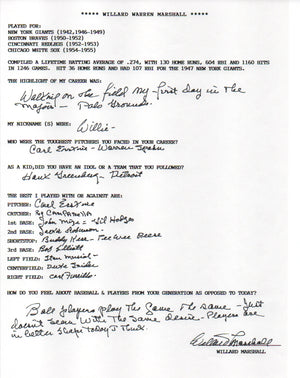 ***** WILLARD WARREN MARSHALL *****
PLAYED FOR:
NEW YORK GIANTS (1942,1946-1949)
BOSTON BRAVES (1950-1952)
CINCINNATI REDLEGS (1952-1953)
CHICAGO WHITE SOX (1954-1955)
COMPILED A LIFETIME BATTING AVERAGE OF .274, WITH 130 HOME RUNS, 604 RBI AND 1160 HITS
IN 1246 GAMES. HIT 36 HOME RUNS AND HAD 107 RBI FOR THE 1947 NEW YORK GIANTS.
THE HIGHLIGHT OF MY CAREER WAS:
Walking on the field my first day in the
majors - Polo Grounds.
MY NICKNAME (S) WERE: Willie -
WHO WERE THE TOUGHEST PITCHERS YOU FACED IN YOUR CAREER?
Carl Erskine - Warren Spahn
AS A KID, DID YOU HAVE AN IDOL OR A TEAM THAT YOU FOLLOWED?
Hank Greenberg - Detroit
THE BEST I PLAYED WITH OR AGAINST ARE:
PITCHER: Carl Erskine
CATCHER: Roy CAMPANELLA
1st BASE: John Mize - Gil Hodges
2nd BASE: Jackie Robinson -
SHORTSTOP: Buddy Kerr - Pee Wee Reese
3rd BASE: Bob Elliott
LEFT FIELD: Stan Musial -
CENTERFIELD: Duke Snider
RIGHT FIELD: Carl Furillo
HOW DO YOU FEEL ABOUT BASEBALL & PLAYERS FROM YOUR GENERATION AS OPPOSED TO TODAY?
Ball players play the same the same - Just
doesn't seem with the same desire - Players are
in better shape today I think.
Willard Marshall
WILLARD MARSHALL